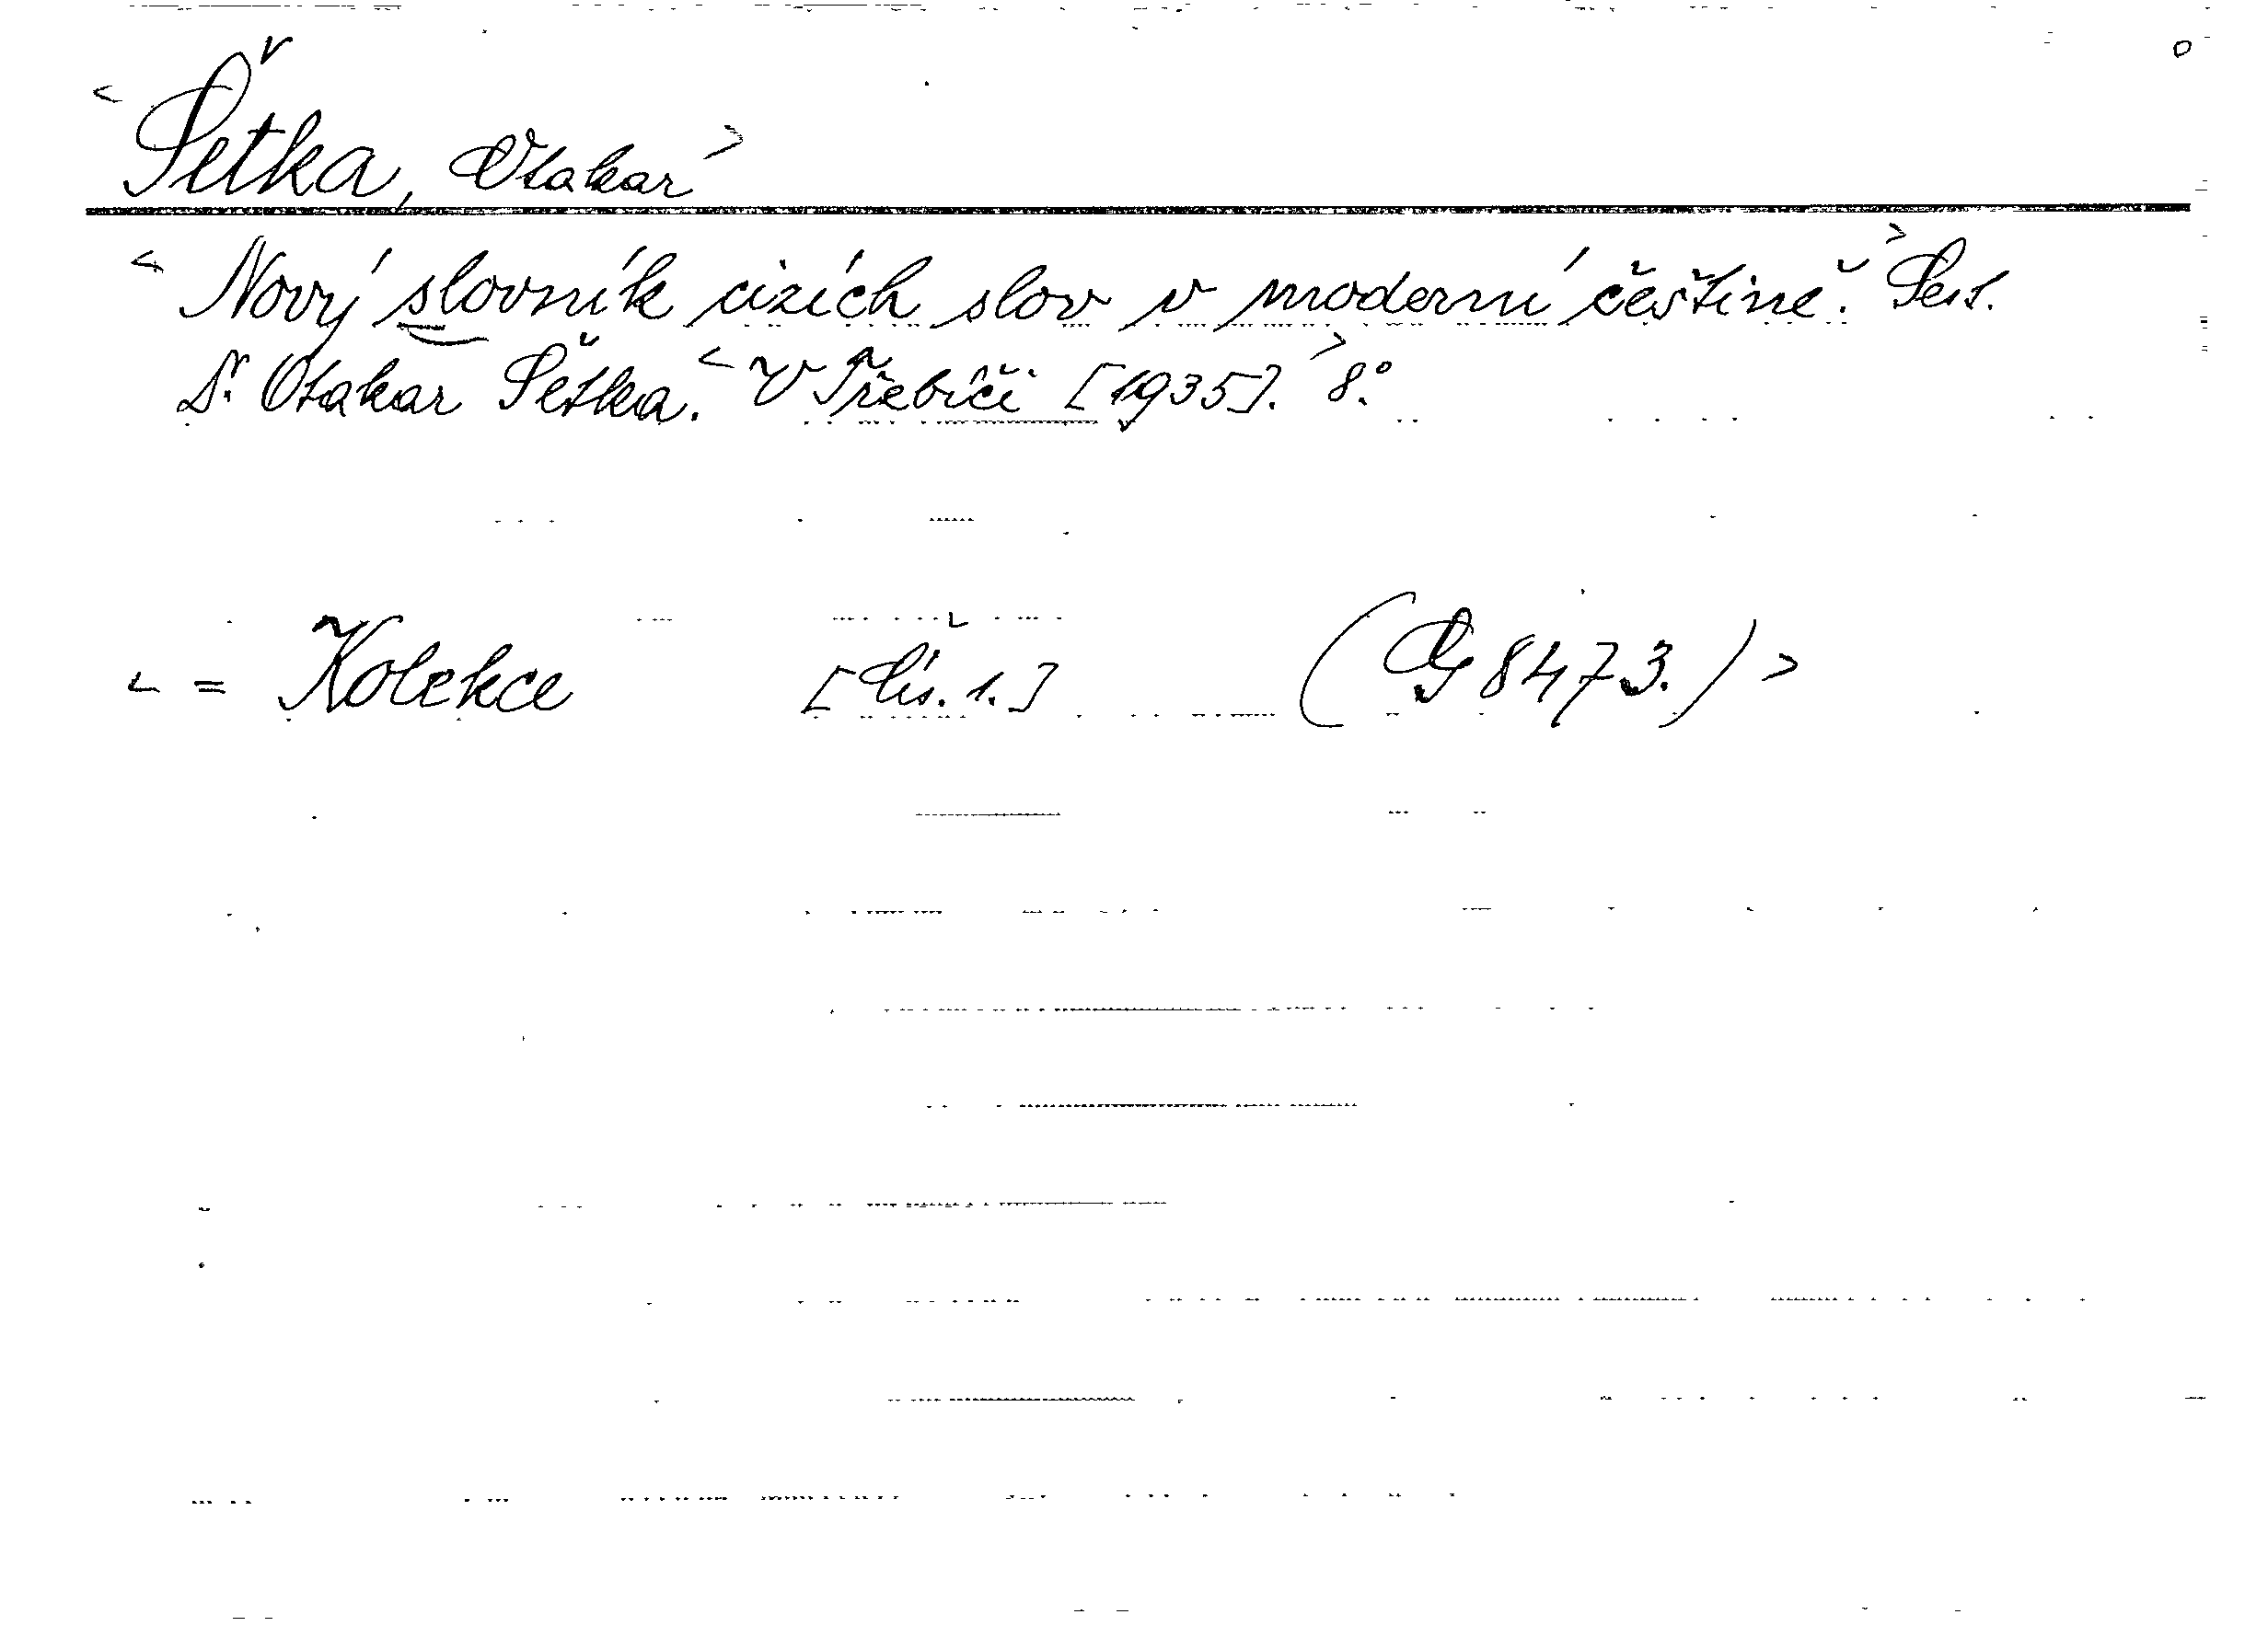 < Šetka, Otakar >
< Nový slovník cizích slov v moderní češtině. > Sest.
Dr. Otakar Šetka. < V Třebíči [1935]. > 8°.
< = Kolekce [Čís. 1.] (G 8473.) >